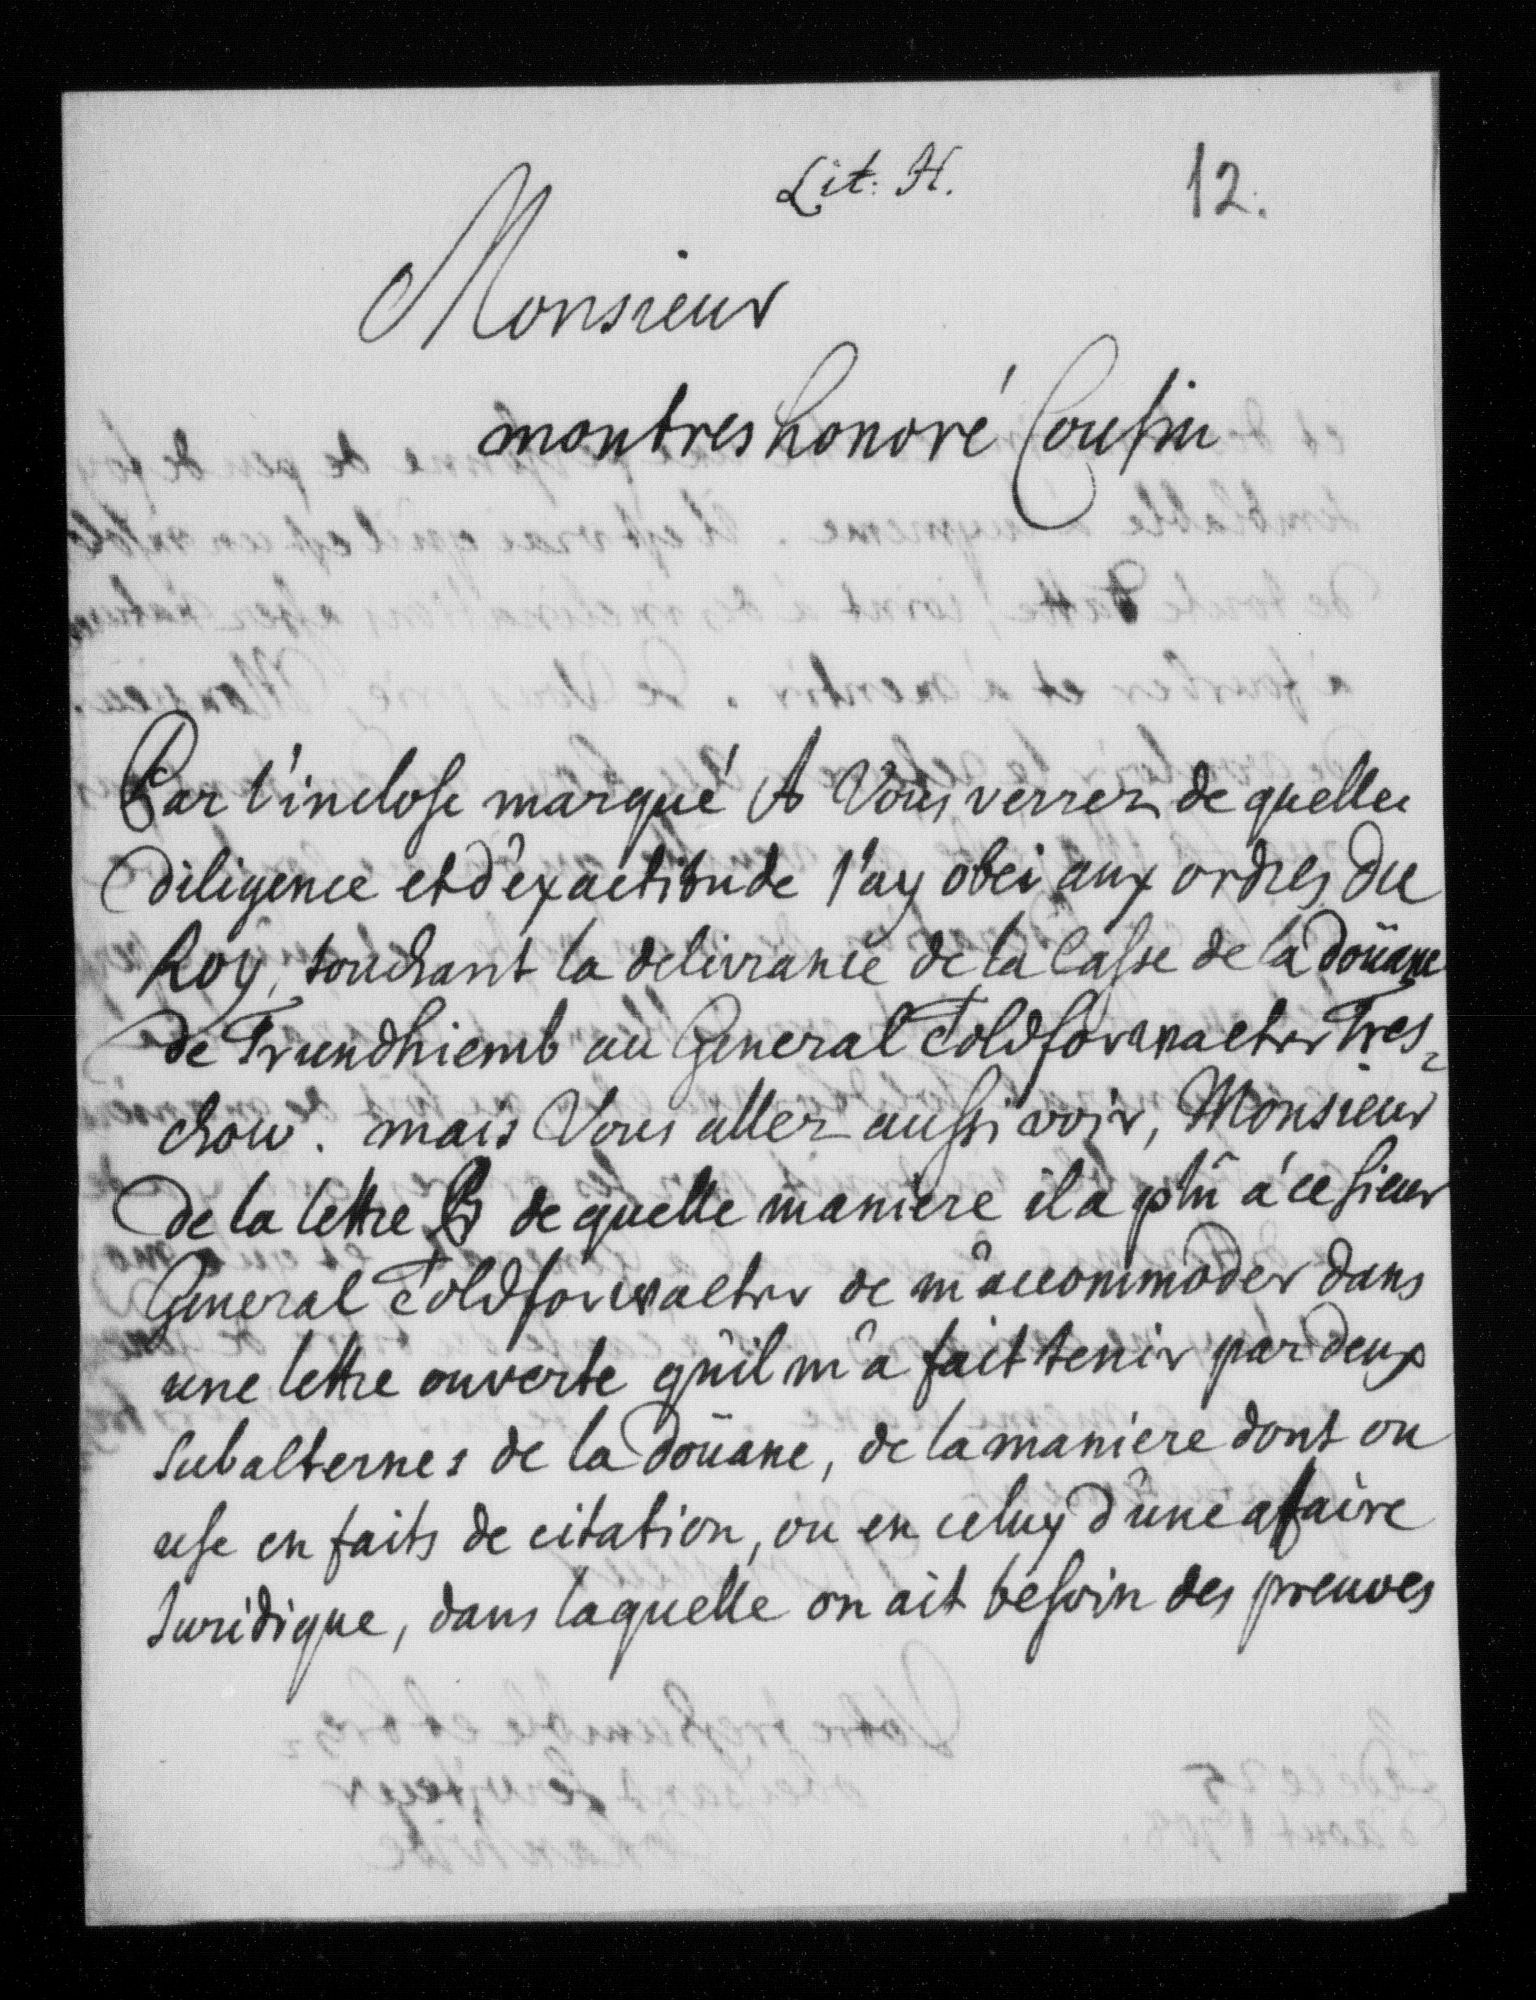 Lit: H. 12.
Monsieur
montres honoré Cousin
Par l'inclose marqué A Vous verrez de quelle
diligence et d'exactitude J'ay obei aux ordres du
Roy, touchant la delivrance de la Casse de la doüane
de Trundhiemb au General Toldforvalter Tres-
chow. mais Vous allez aussi voir, Monsieur
de la lettre B de quelle maniere il a plû à ce sieur
General Toldforvalter de m'accommoder dans
une lettre ouverte qu'il m'a fait tenir par deux
subalternes de la doüane, de la maniere dont on
use en faits de citation, ou en celuy d'une afaire
Juridique, dans laquelle on ait besoin des preuves